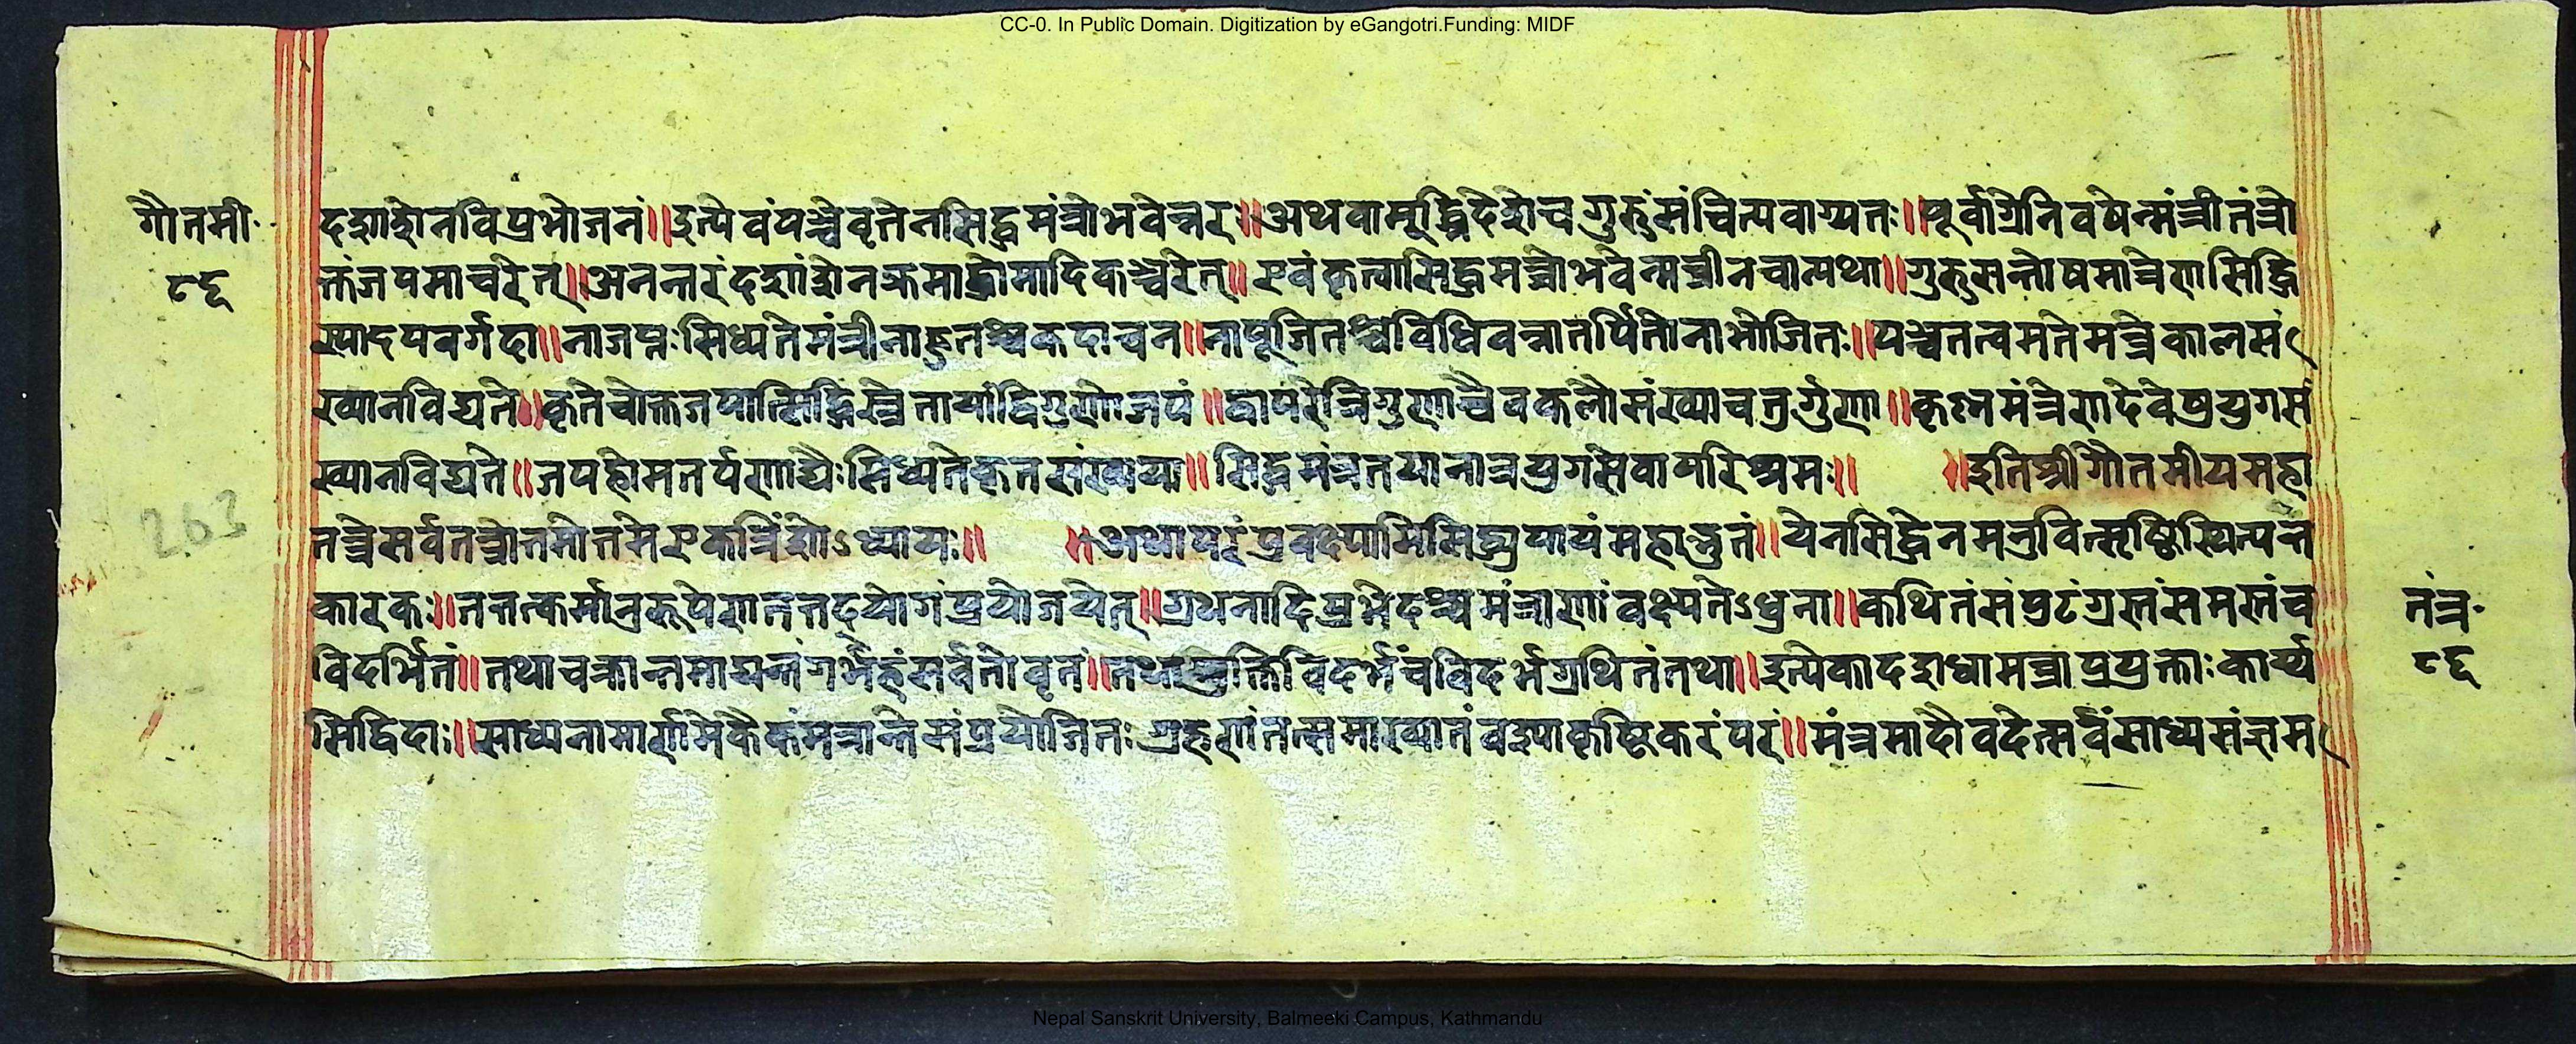 CC-0. In Public Domain. Digitization by eGangotri.Funding: MIDF
गौतमी
८६
दशांशेनविप्रभोजनं॥इत्येवंपञ्चवृत्तेनसिद्धमंत्रोभवेन्नरः॥अथवामूर्द्ध्निदेशेचगुरुंसंचिन्त्यवाग्यतः॥पूर्वाग्रेनिवषेन्मंत्रीतंत्रो
क्तंजपमाचरेत्॥अनन्तरंदशांशेनक्रमाद्धोमादिकञ्चरेत्॥एवंकृत्वासिद्धमन्त्रोभवेन्मन्त्रीनचान्यथा॥गुरुसन्तोषमात्रेणसिद्धि
स्यादपवर्गदा॥नाजप्तःसिध्यतेमंत्रीनाहुतश्चकदाचन॥नापूजितश्चविधिवन्नातर्पितोनाभोजितः॥पञ्चतत्वमतेमन्त्रेकालसं
ख्यानविद्यते॥कृतेचोक्तजपात्सिद्धिस्त्रेतायांद्विगुणोजपं॥द्वापरेत्रिगुणाश्चैवकलौसंख्याचतुर्गुणा॥कृष्णमंत्रेणदेवेषुयुगसं
ख्यानविद्यते॥जपहोमतर्पणाद्यैःसिध्यतेकृतसंख्यया॥सिद्धमंत्रतयानात्रयुगसेवापरिश्रमः॥ ॥इतिश्रीगौतमीयमहा
तन्त्रेसर्वतन्त्रोत्तमोत्तमेएकत्रिंशोऽध्यायः॥ ॥अथापरंप्रवक्ष्यामिसिद्ध्युपायंमहाद्भुतं॥येनसिद्धेनमनुवित्सृष्टिस्थित्यन्त
कारकः॥तत्तत्कर्मानुरूपेणतत्तद्योगंप्रयोजयेत्॥ग्रथनादिप्रभेदश्चमंत्राणांवक्ष्यतेऽधुना॥कथितंसंपुटंग्रस्तंसमस्तंच
विदर्भितं॥तथाचक्रान्तमाद्यन्तंगर्भहंसर्वतोवृतं॥तथायुक्तिविदर्भंचविदर्भग्रथितंतथा॥इत्येकादशधामन्त्राप्रयुक्ताःकार्य्य
सिद्धिदाः॥साध्यनामार्णमेकैकंमन्त्रान्तेसंप्रयोजितः ग्रहणांतत्समाख्यातंवश्याकृष्टिकरंपरं॥मंत्रमादौवदेत्सर्वंसाध्यसंज्ञम
263
तंत्र
८६
Nepal Sanskrit University, Balmeeki Campus, Kathmandu